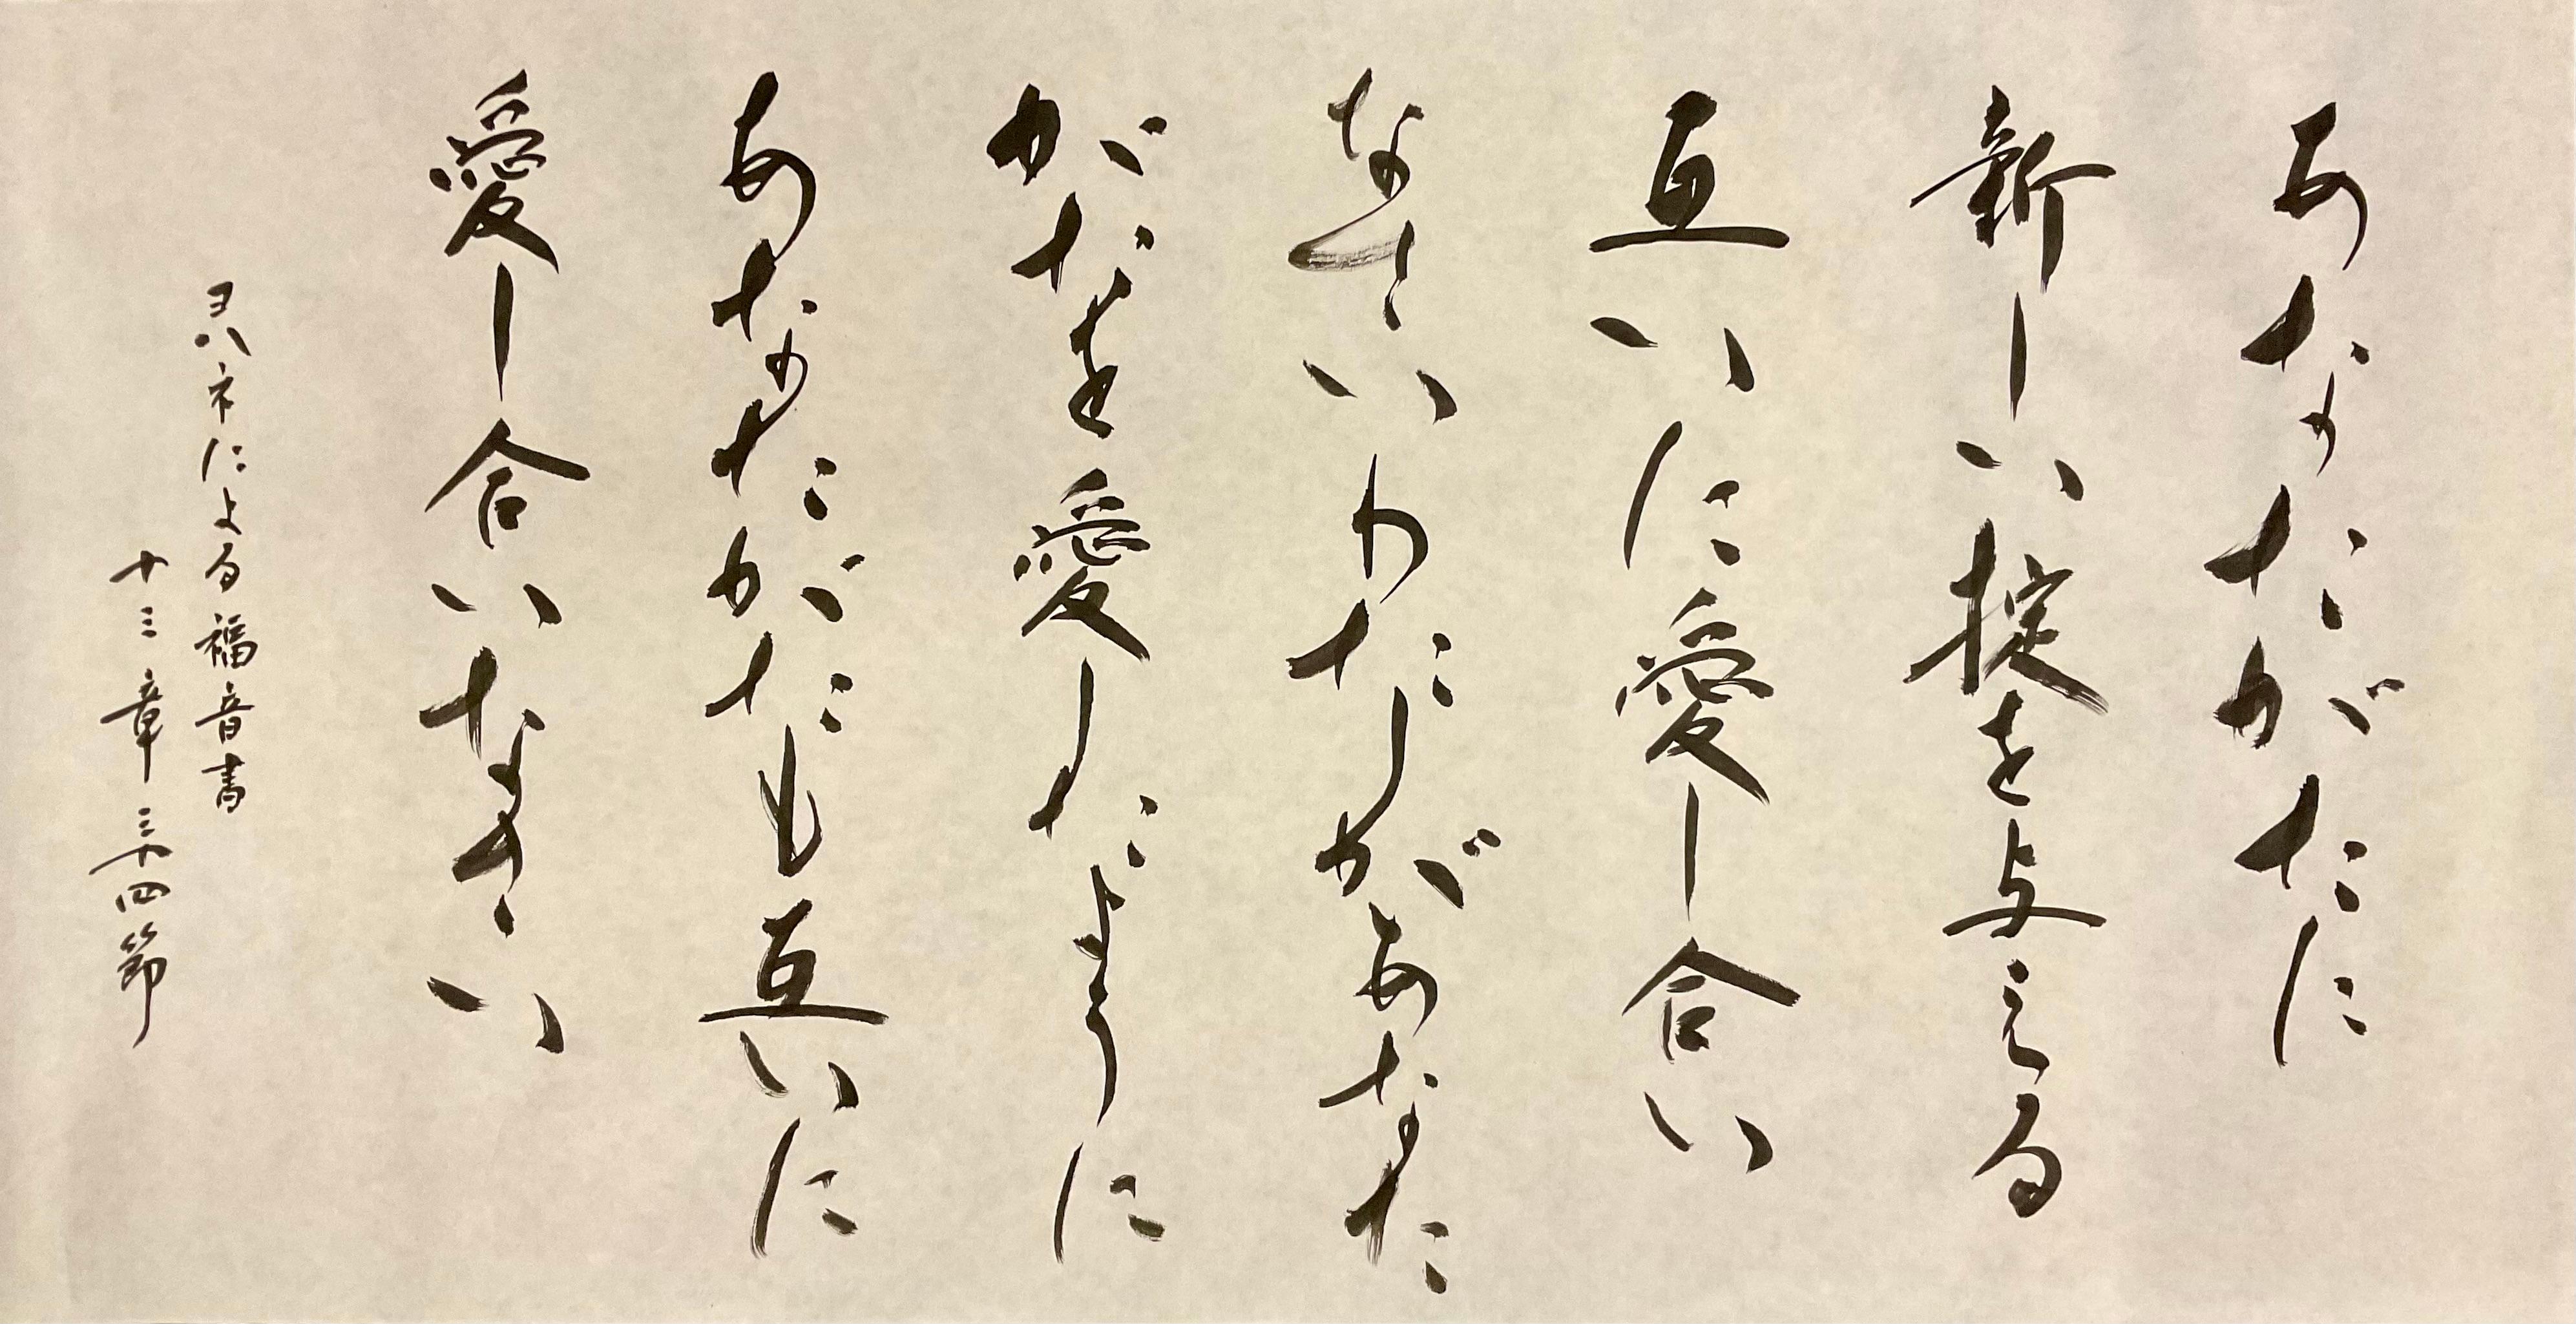 あなたがたに
新しい掟を与える
互いに愛し合い
なさいわたしがあなた
がたを愛したように
あなたがたも互いに
愛し合いなさい
ヨハネによる福音書
十三章三十四節